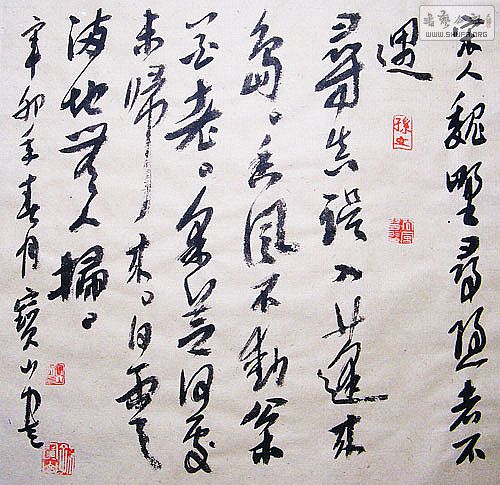 宋人魏野尋隱者不
遇
尋真誤入蓬萊
島。香風不動松
花老。采芝何處
未歸來。白雲
滿地無人掃。
辛卯年春月寶山書
WWW.SHUFA.ORG